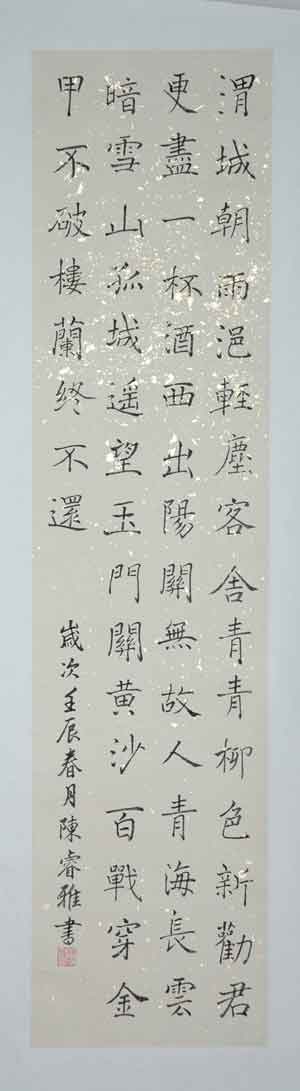 渭城朝雨浥輕塵客舍青青柳色新勸君
更盡一杯酒西出陽關無故人青海長雲
暗雪山孤城遥望玉門關黄沙百戰穿金
甲不破樓蘭終不還
歲次壬辰春月陳睿雅書